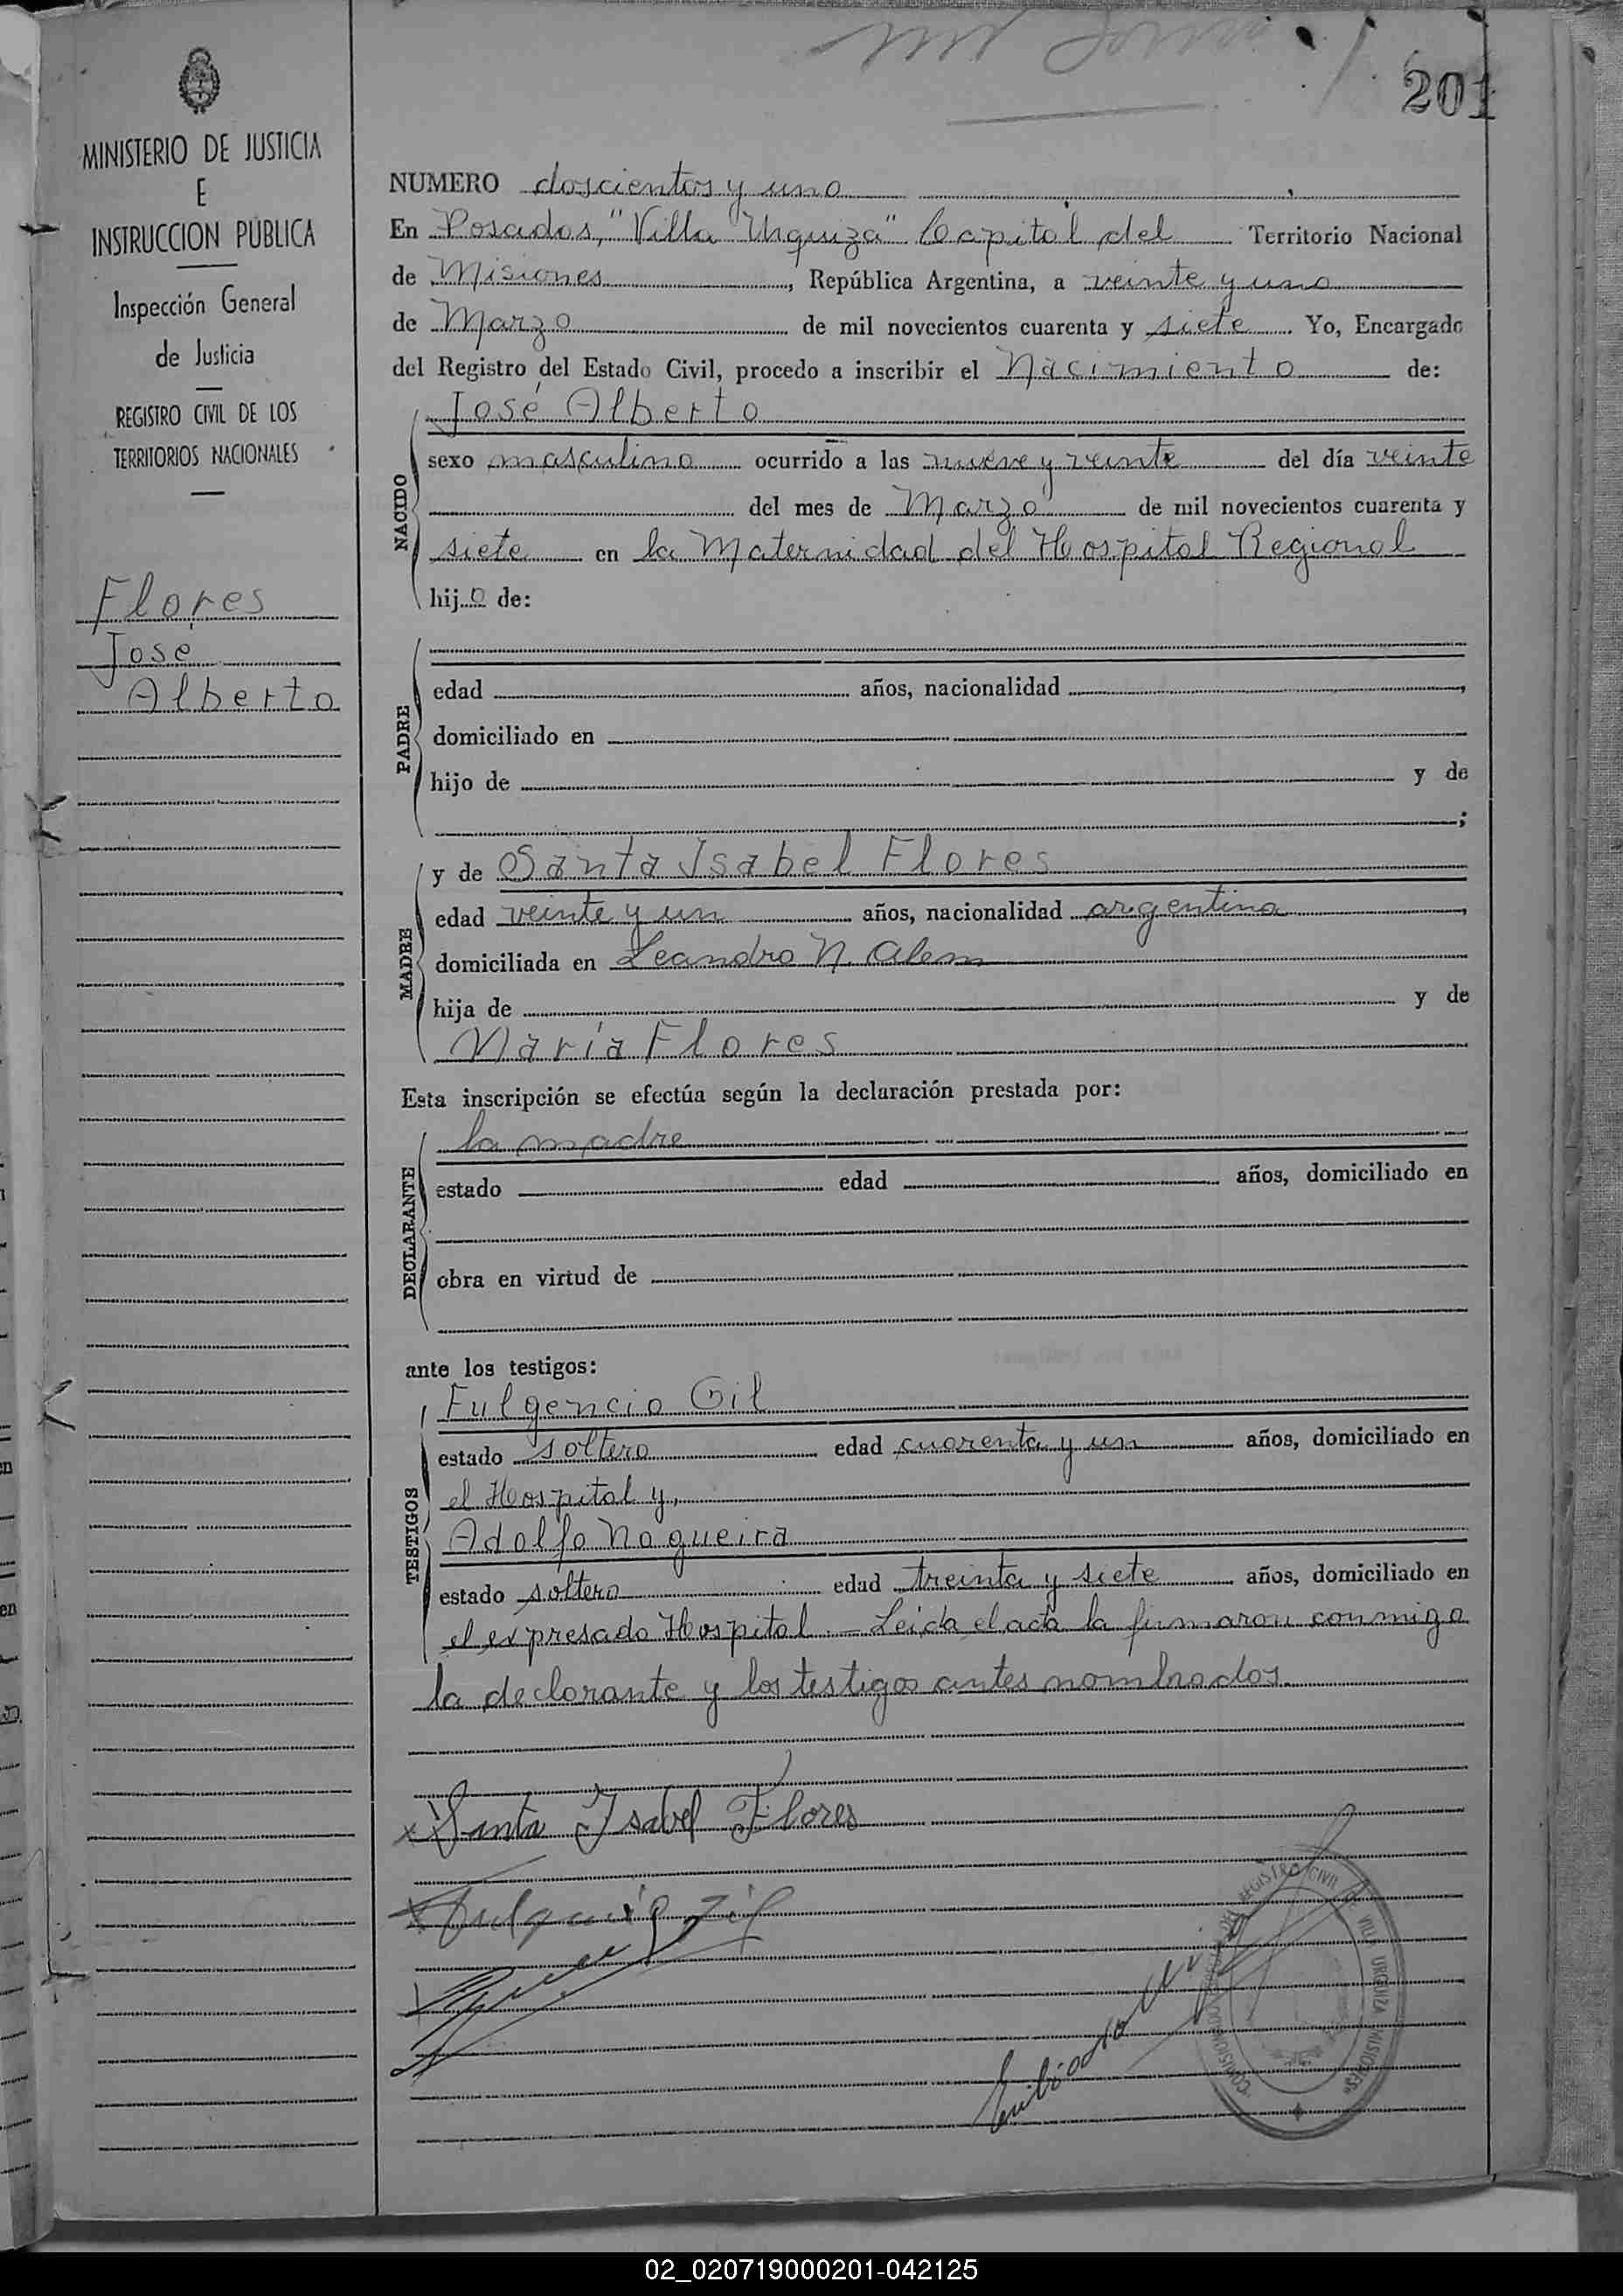 201
MINISTERIO DE JUSTICIA
E
INSTRUCCION PÚBLICA
Inspección General
de Justicia
REGISTRO CIVIL DE LOS
TERRITORIOS NACIONALES
Flores
José
Alberto
NUMERO doscientos y uno
En Posadas, "Villa Urquiza" Capital del Territorio Nacional
de Misiones, República Argentina, a veinte y uno
de Marzo de mil novecientos cuarenta y siete. Yo, Encargado
del Registro del Estado Civil, procedo a inscribir el Nacimiento de:
NACIDO
José Alberto
sexo masculino ocurrido a las nueve y veinte del día veinte
del mes de Marzo de mil novecientos cuarenta y
siete en la Maternidad del Hospital Regional
hijo de:
PADRE
edad años, nacionalidad ,
domiciliado en
hijo de y de
;
MADRE
y de Santa Isabel Flores
edad veinte y un años, nacionalidad argentina,
domiciliada en Leandro N. Alem
hija de y de
María Flores
Esta inscripción se efectúa según la declaración prestada por:
DECLARANTE
la madre
estado edad años, domiciliado en
obra en virtud de
ante los testigos:
TESTIGOS
Fulgencio Gil
estado soltero edad cuarenta y un años, domiciliado en
el Hospital y,
Adolfo Nogueira
estado soltero edad treinta y siete años, domiciliado en
el expresado Hospital.- Leida el acta la firmaron conmigo
la declarante y los testigos antes nombrados.
x Santa Isabel Flores
Fulgencio Gil
REGISTRO CIVIL DE VILLA URQUIZA MISIONES
02_020719000201-042125